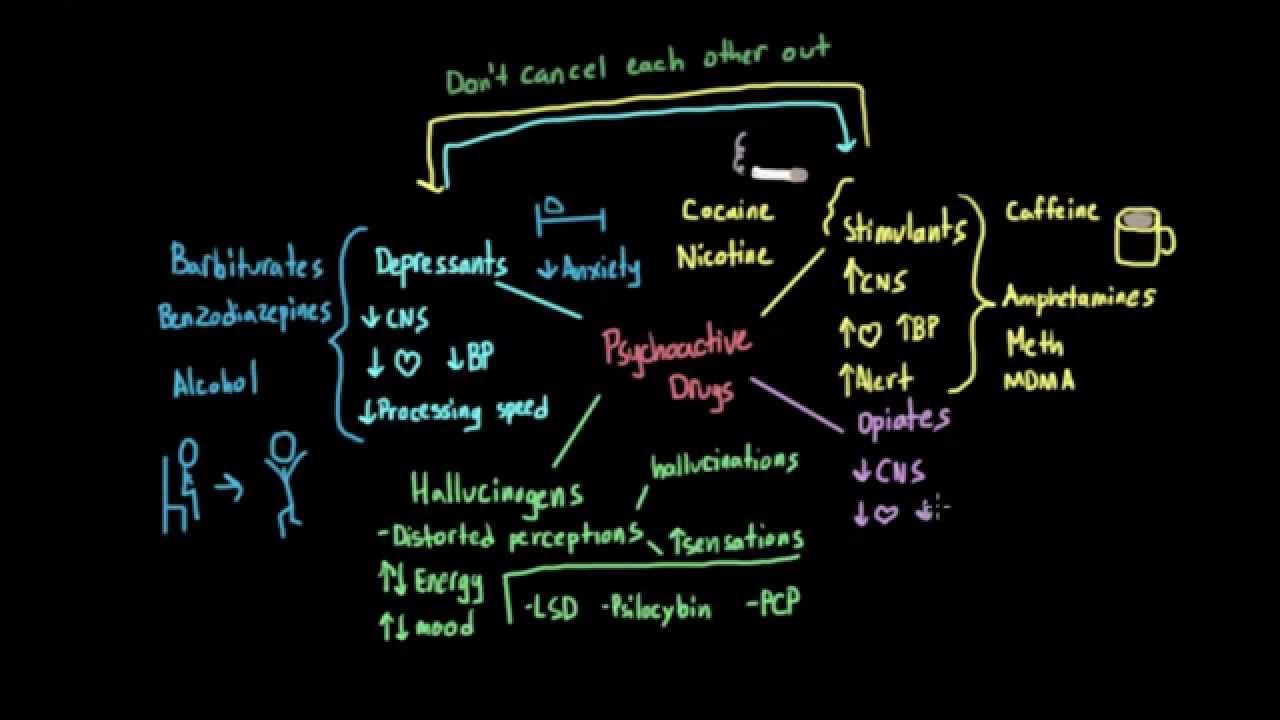 Don't cancel each other out
Barbiturates
Benzodiazepines
Alcohol
Depressants
↓ CNS
↓ ♡ ↓ BP
↓ Processing speed
↓ Anxiety
Cocaine
Nicotine
Stimulants
↑ CNS
↑ ♡ ↑ BP
↑ Alert
Caffeine
Amphetamines
Meth
MDMA
Psychoactive
Drugs
Opiates
↓ CNS
↓ ♡ ↓
Hallucinogens
-Distorted perceptions
hallucinations
↑ sensations
↑↓ Energy
↑↓ mood
-LSD -Psilocybin -PCP